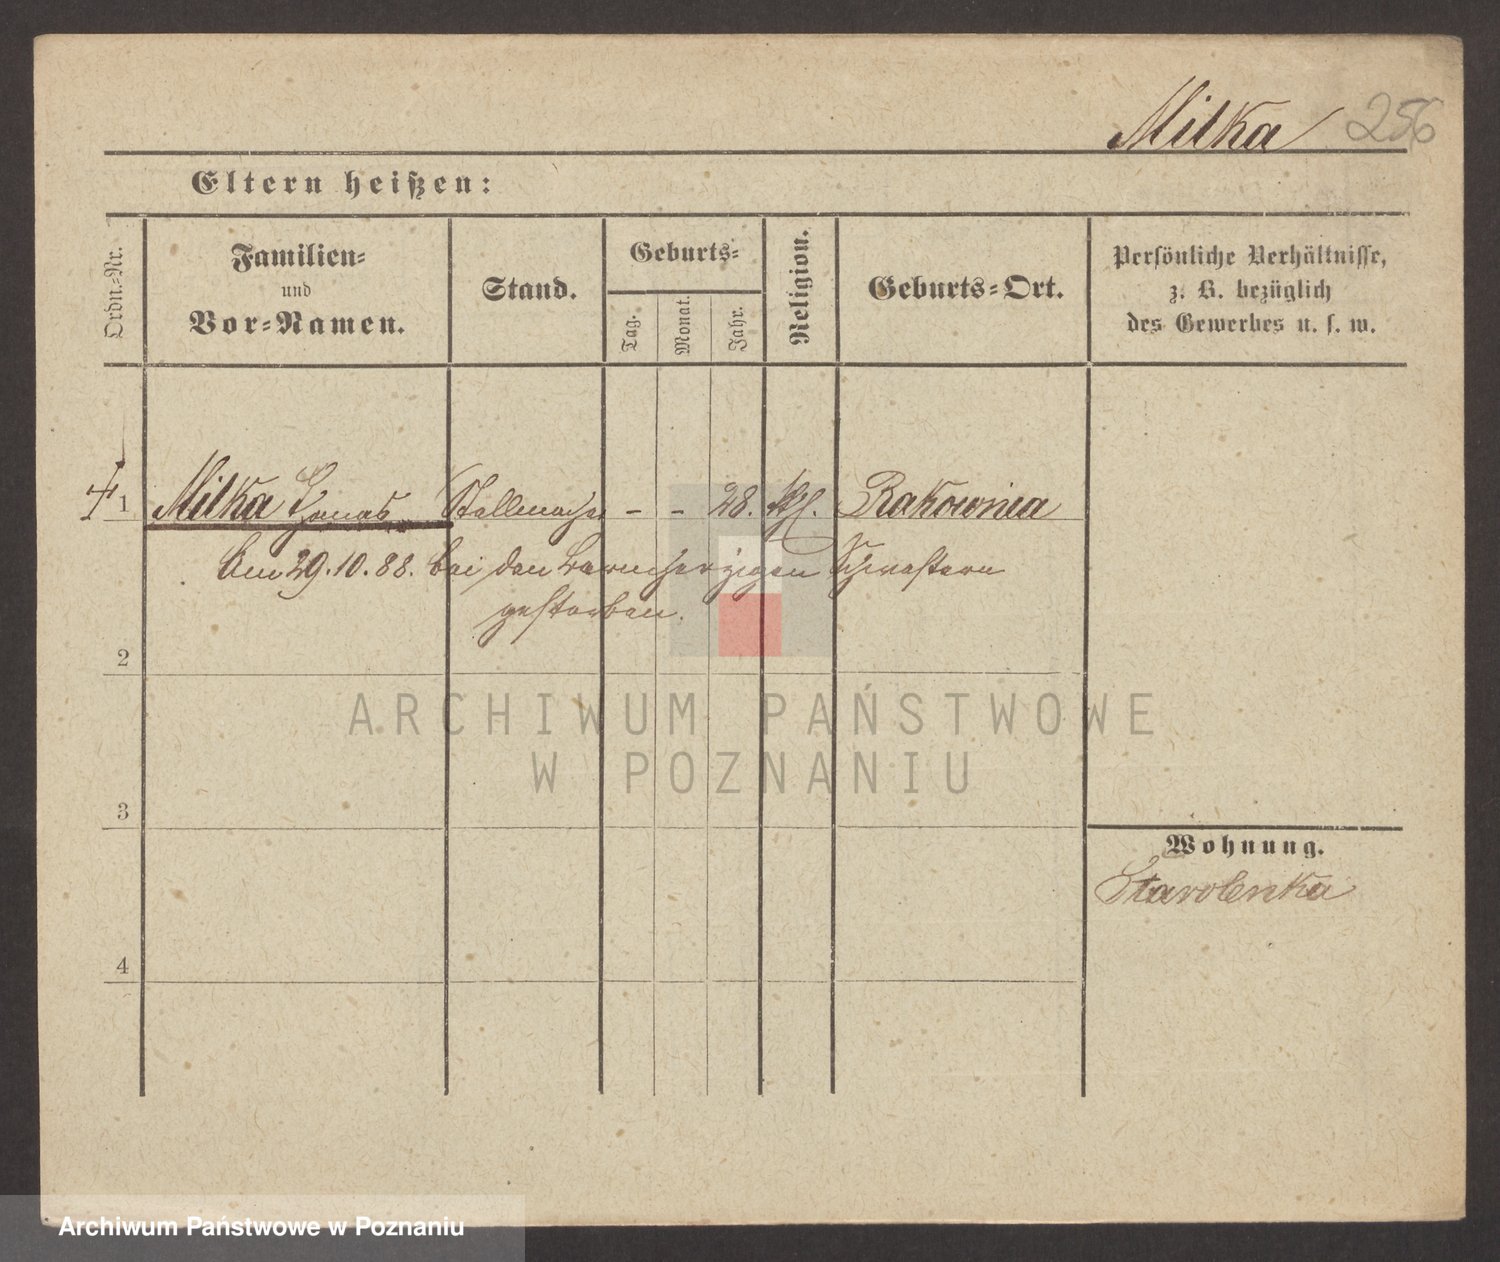 Milka 256
Eltern heißen:
Ordn.-Nr.
Familien-
und
Vor-Namen.
Stand.
Geburts-
Tag.
Monat.
Jahr.
Religion.
Geburts-Ort.
Persönliche Verhältnisse,
z. B. bezüglich
des Gewerbes u. s. w.
1 Milka Stellmacher - - 28. kth. Rakownia
Am 29.10.88. bei den barmherzigen Schwestern
gestorben.
2
3
4
Wohnung.
Starolenka
ARCHIWUM PAŃSTWOWE
W POZNANIU
Archiwum Państwowe w Poznaniu